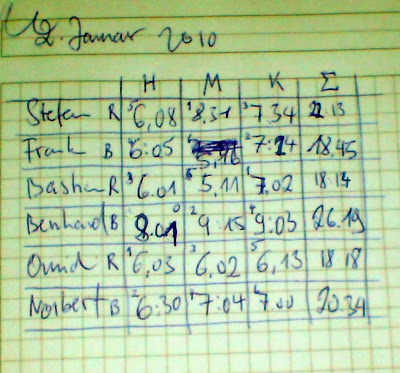 2. Januar 2010
H M K Σ
Stefan R 6,08 8.31 7.34 22.13
Frank B 6:05 5,16 7:24 18.45
Bastian R 6.01 5,11 7.02 18.14
Bernhard B 8.01 9:15 9:03 26.19
R 6,03 6,02 6,13 18 18
Norbert B 6:30 7:04 7.00 20.34